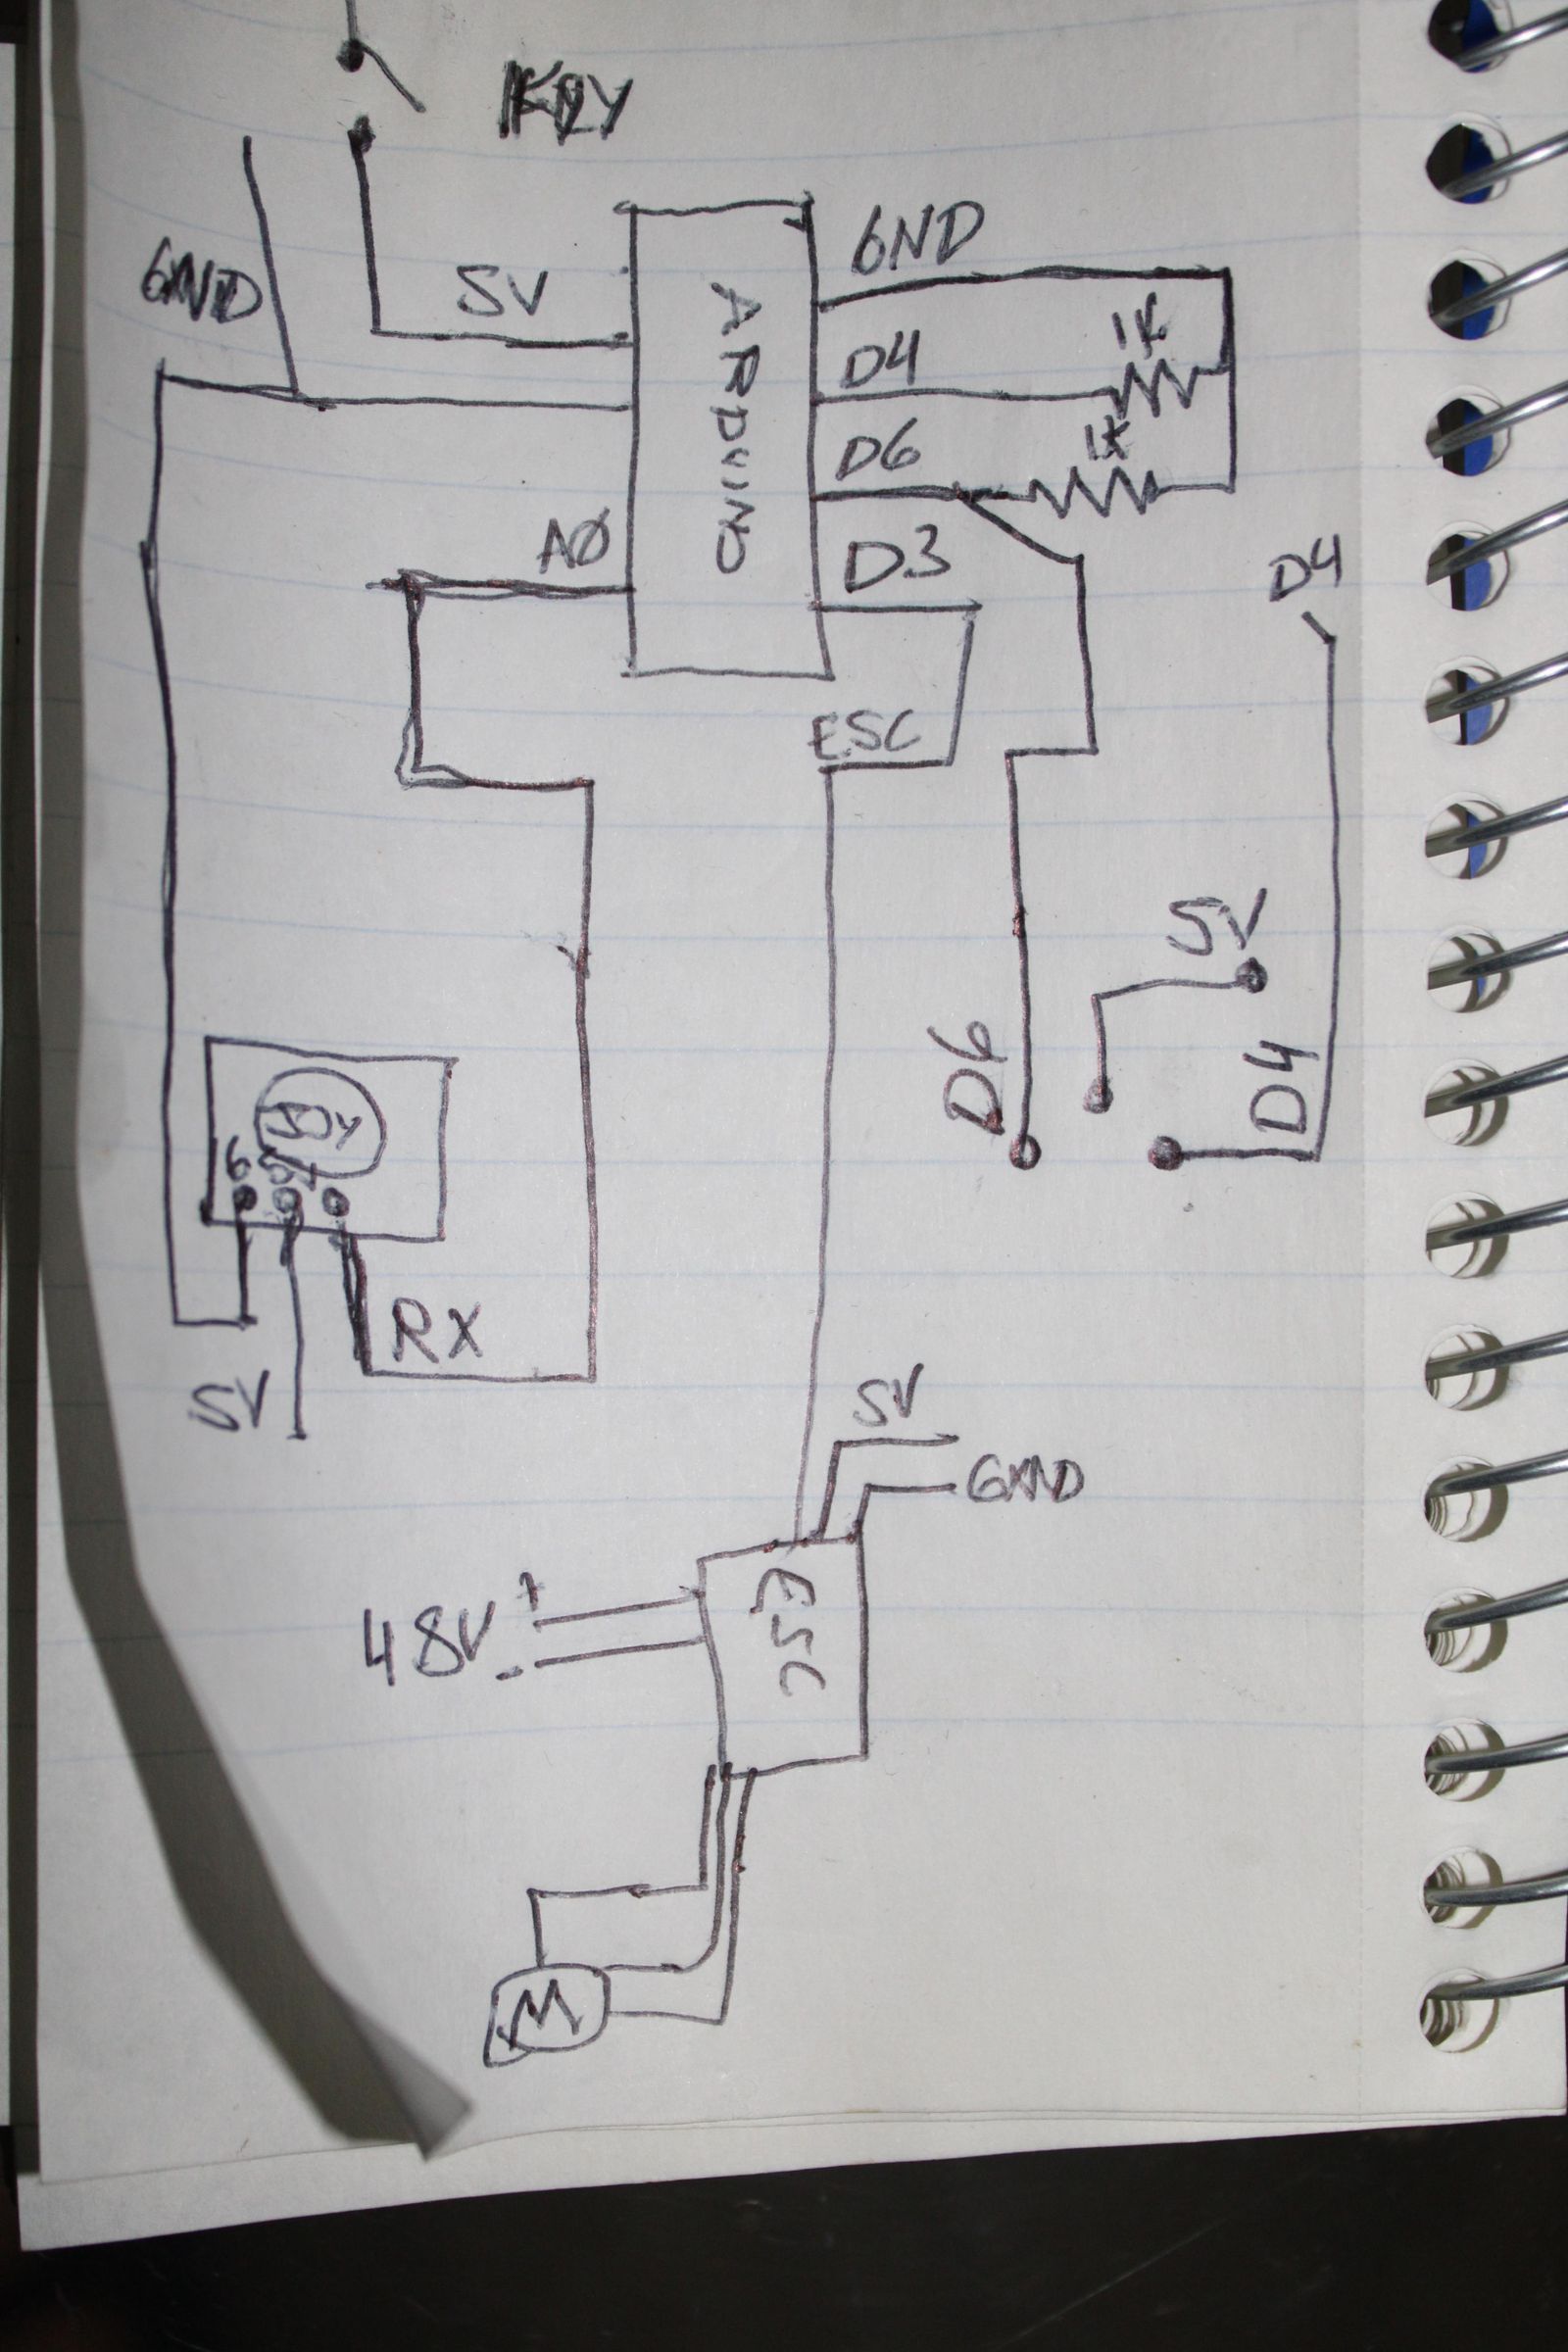 KEY
GND
GND
5V
1K
D4
1K
D6
ARDUINO
AØ
D3
D4
ESC
5V
D6
D4
G 5V
RX
5V
5V
GND
ESC
48V + -
M